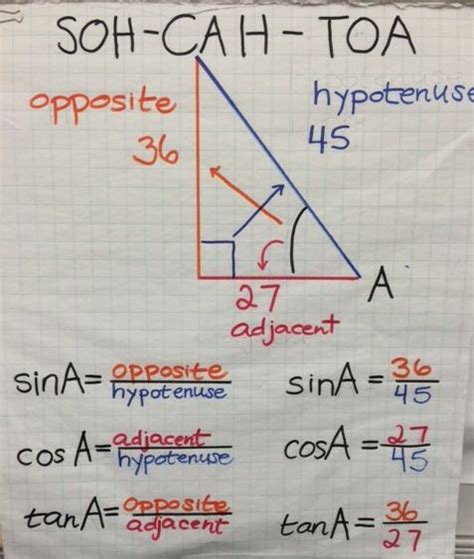 SOH-CAH-TOA
opposite
36
hypotenuse
45
A
27
adjacent
sinA = opposite/hypotenuse
sinA = 36/45
cos A = adjacent/hypotenuse
cosA = 27/45
tanA = opposite/adjacent
tanA = 36/27